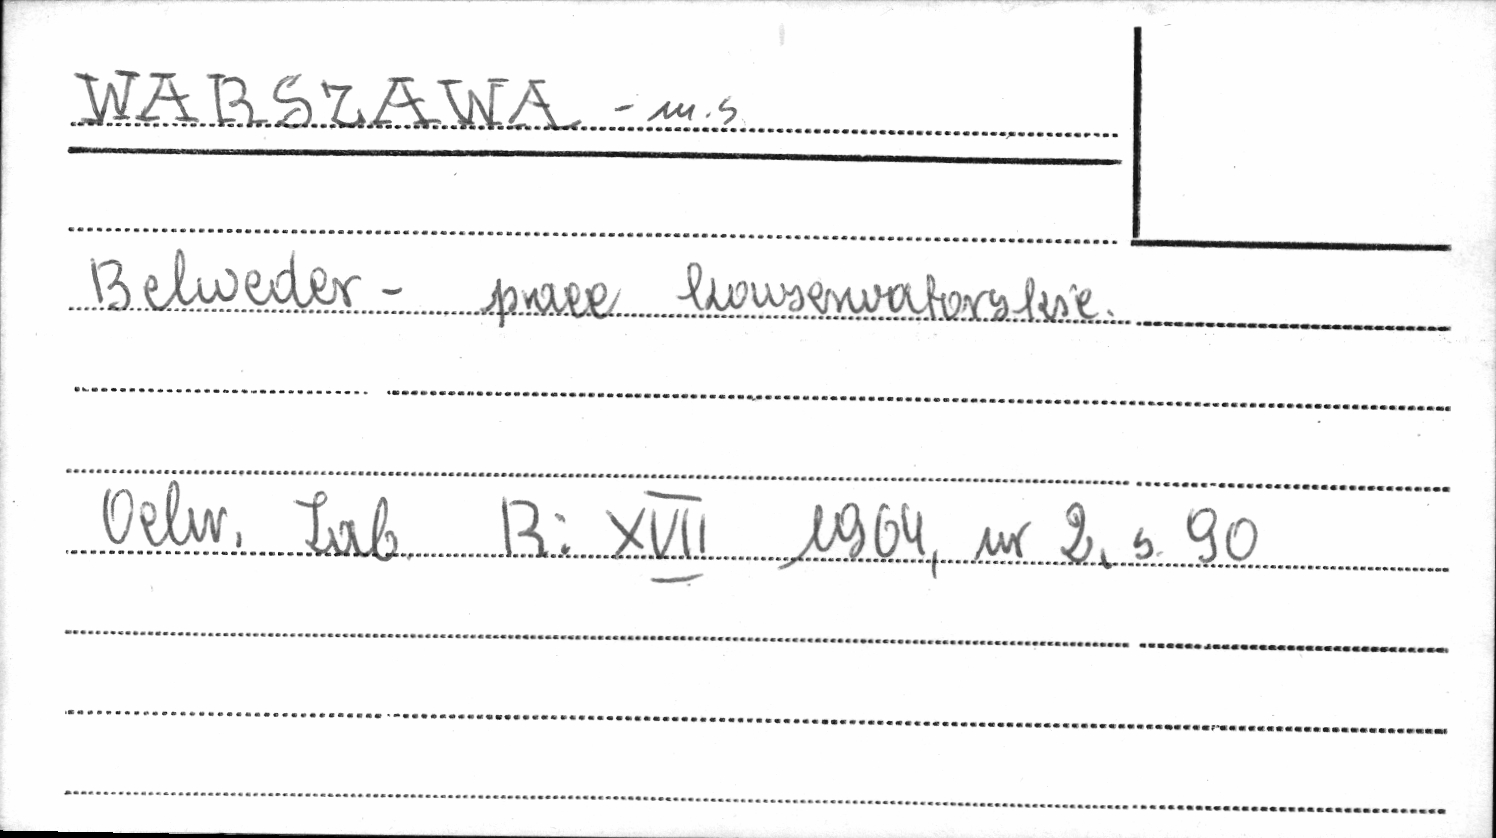 WARSZAWA - m.s
Belweder - prace konserwatorskie.
Ochr. Zab. R: XVII 1964, nr 2, s. 90